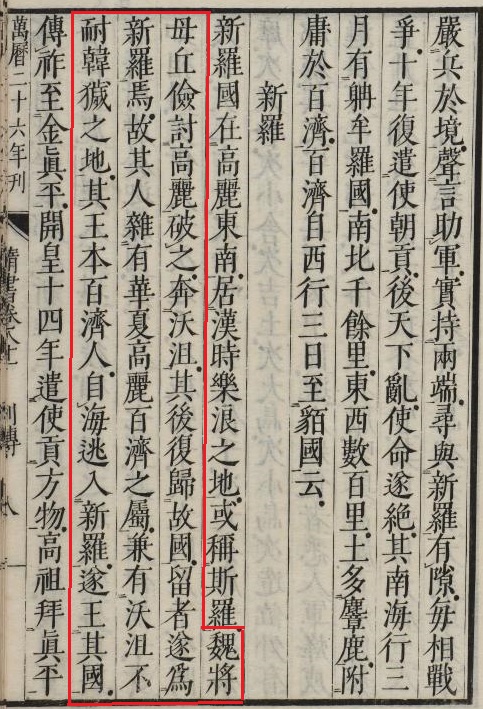 嚴兵於境聲言助軍實持兩端尋與新羅有隙毎相戰
爭十年復遣使朝貢後天下亂使命遂絕其南海行三
月有躭牟羅國南北千餘里東西數百里土多麞鹿附
庸於百濟百濟自西行三日至貊國云
新羅
新羅國在高麗東南居漢時樂浪之地或稱斯羅魏將
毋丘儉討高麗破之奔沃沮其後復歸故國留者遂爲
新羅焉故其人雜有華夏高麗百濟之屬兼有沃沮不
耐韓獩之地其王本百濟人自海逃入新羅遂王其國
傳祚至金眞平開皇十四年遣使貢方物高祖拜眞平
萬曆二十六年刊 隋書卷八十一 列傳 八